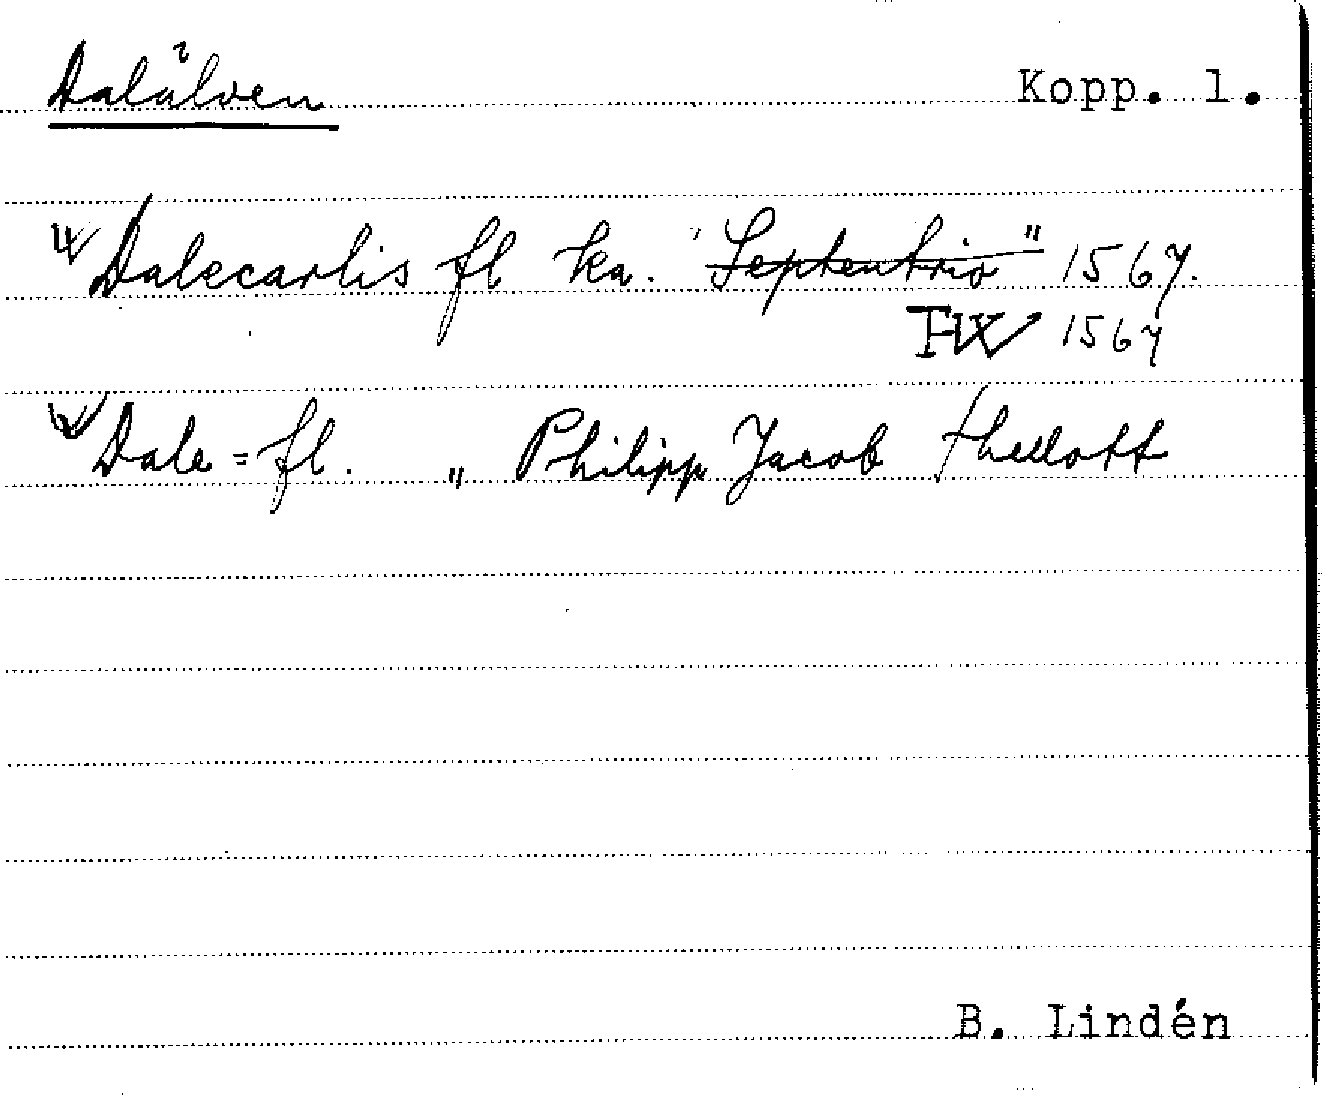 Dalälven Kopp. 1.
Dalecarlis fl ka. "Septentrio" 1567.
FW 1567
Dale=fl. " Philipp Jacob Thellott
B. Lindén